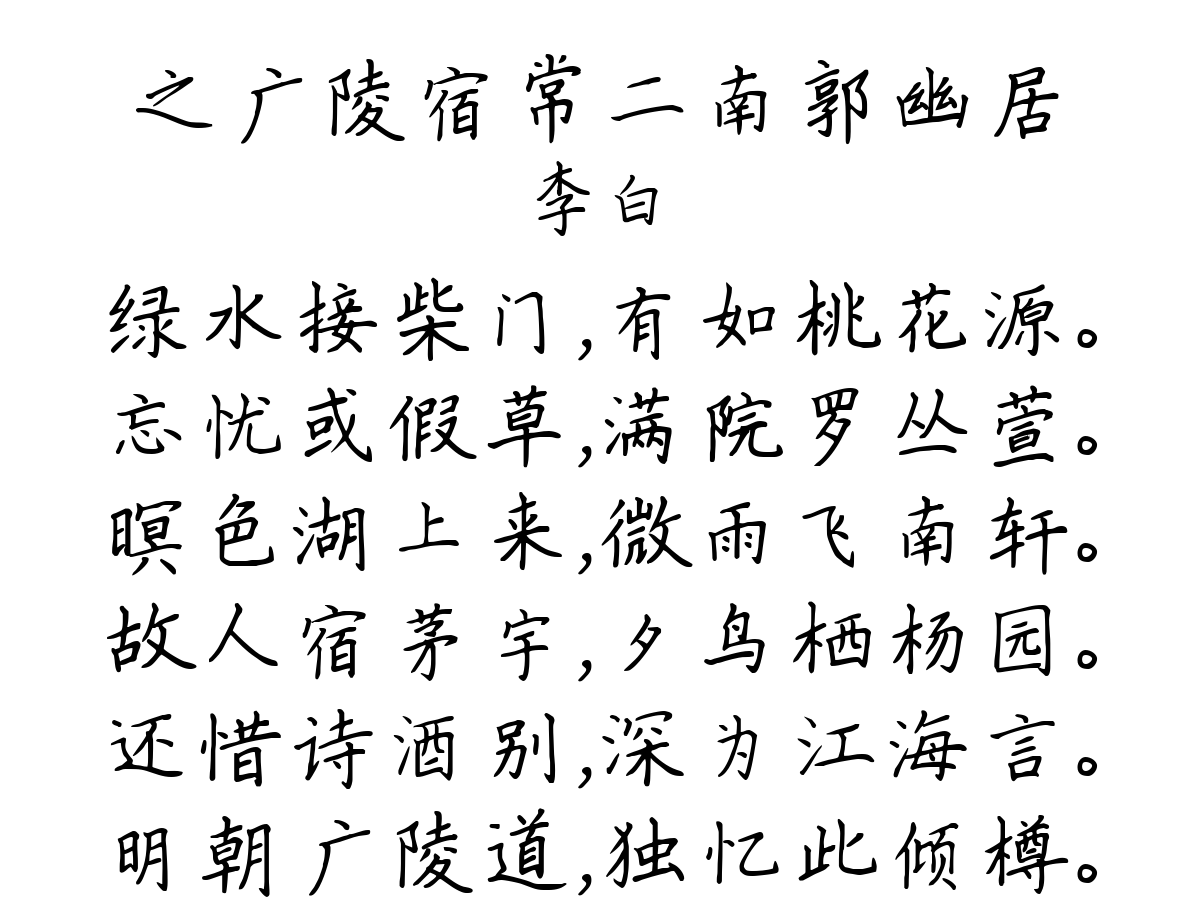 之广陵宿常二南郭幽居
李白
绿水接柴门,有如桃花源。
忘忧或假草,满院罗丛萱。
暝色湖上来,微雨飞南轩。
故人宿茅宇,夕鸟栖杨园。
还惜诗酒别,深为江海言。
明朝广陵道,独忆此倾樽。